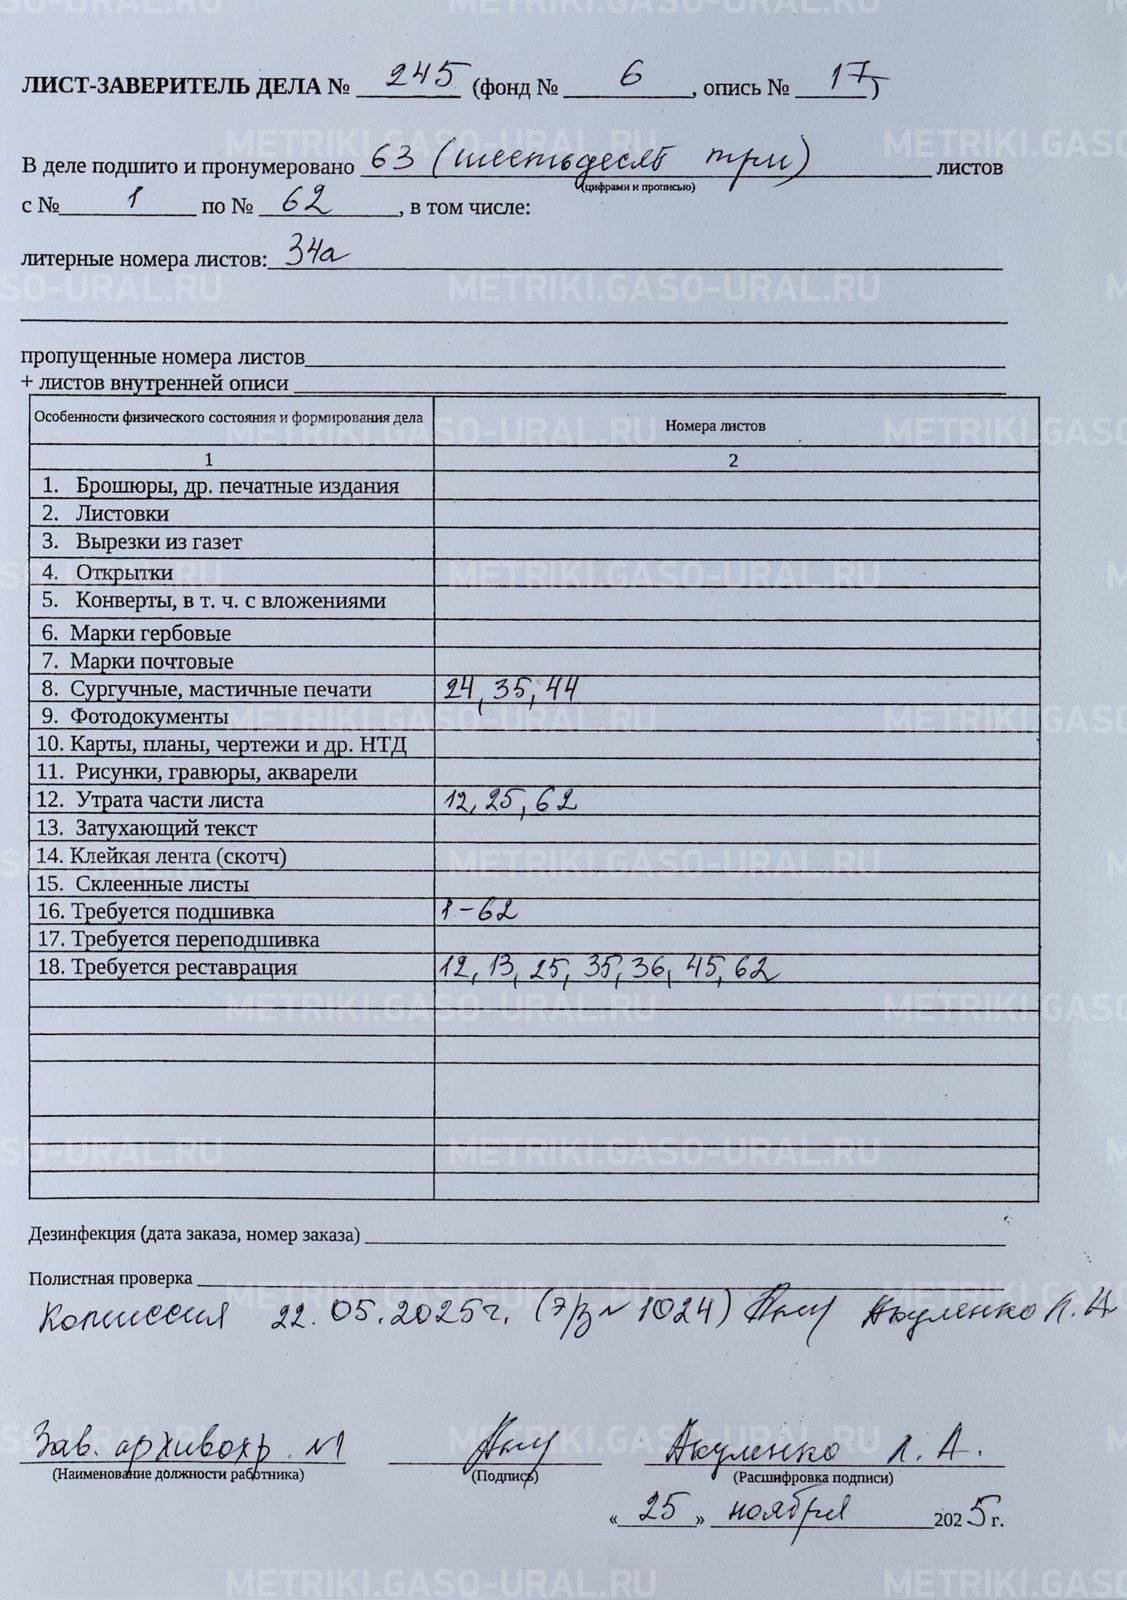 ЛИСТ-ЗАВЕРИТЕЛЬ ДЕЛА № 245 (фонд № 6, опись № 17)
В деле подшито и пронумеровано 63 (шестьдесят три) листов
(цифрами и прописью)
с № 1 по № 62, в том числе:
литерные номера листов: 34а
пропущенные номера листов
+ листов внутренней описи
Особенности физического состояния и формирования дела Номера листов
1 2
1. Брошюры, др. печатные издания
2. Листовки
3. Вырезки из газет
4. Открытки
5. Конверты, в т. ч. с вложениями
6. Марки гербовые
7. Марки почтовые
8. Сургучные, мастичные печати 24, 35, 44
9. Фотодокументы
10. Карты, планы, чертежи и др. НТД
11. Рисунки, гравюры, акварели
12. Утрата части листа 12, 25, 62
13. Затухающий текст
14. Клейкая лента (скотч)
15. Склеенные листы
16. Требуется подшивка 1-62
17. Требуется переподшивка
18. Требуется реставрация 12, 13, 25, 35, 36, 45, 62
Дезинфекция (дата заказа, номер заказа)
Полистная проверка
Комиссия 22.05.2025г. 1024) Акуленко Л.А
Зав. архивохр. №1 Акуленко Л. А.
(Наименование должности работника) (Подпись) (Расшифровка подписи)
«25» ноября 2025 г.
METRIKI.GASO-URAL.RU